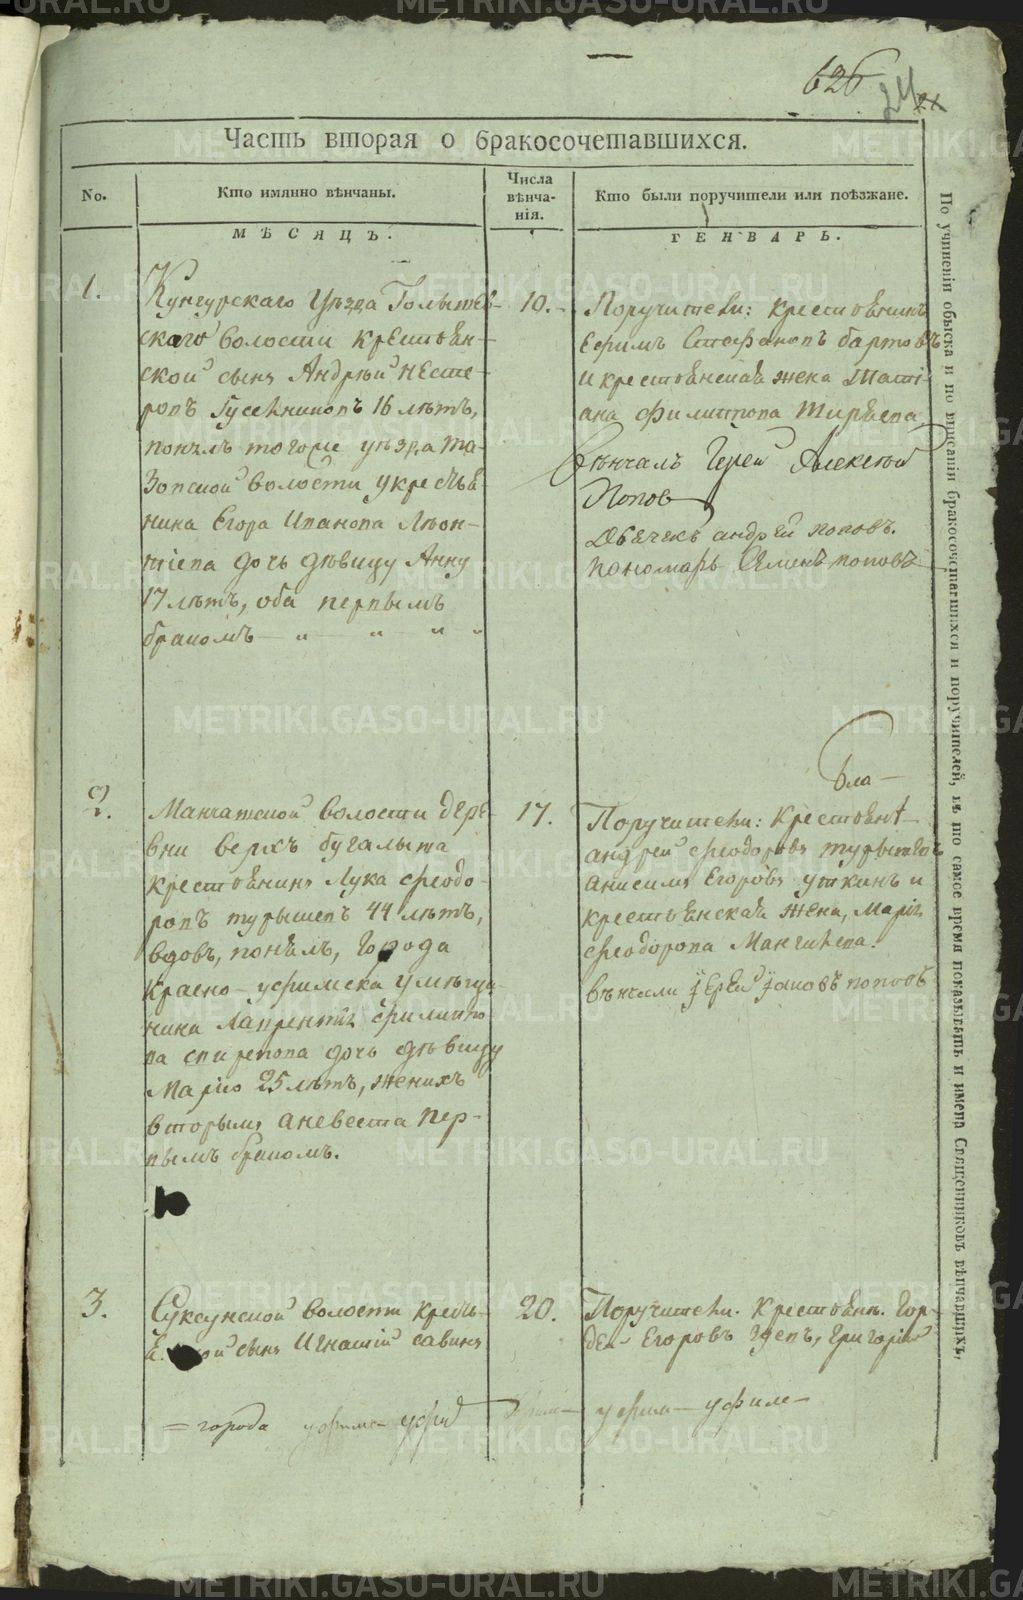 626
24
Часть вторая о бракосочетавшихся.
No.
Кто имянно вѣнчаны.
Числа вѣнча-нія.
Кто были поручители или поѣзжане.
МѢСЯЦЪ.
ГЕНВАРЬ.
1.
Кунгурскаго Уѣзда
скаго волости крестьян-
ской сынъ Андрѣй Несте-
ровъ 16 лѣтъ,
понялъ тогоже уѣзда Та-
зовской волости у крестья
нина Егора Иванова Леон-
тіева дочь дѣвицу Анну
17 лѣтъ, оба первымъ
бракомъ
10.
Поручители: крестьянинъ
Ефимъ Стефановъ бартовъ
и крестьянская жена Тати-
ана филиппова
Вѣнчалъ Іерей Алексѣй
Попов
Дьячекъ андрей поповъ.
пономарь Семенъ поповъ
2.
Манчажской волости дере-
вни верхъ бугалыша
крестьянинъ Лука Феодо-
ровъ турышевъ 44 лѣтъ,
вдовъ, понялъ, города
Красно-уфимска у мѣща-
нина Лаврентія филиппо
ва дочь дѣвицу
Марію 25 лѣтъ, женихъ
вторымъ а невеста пер-
вымъ бракомъ.
17.
Бла-
Поручители: Крестьяне
андрей феодоровъ турышевъ
анисимъ Егоровъ уткинъ и
крестьянская жена, Марія
феодорова
вѣнчали іерей іаковъ поповъ
3.
Суксунской волости кресть-
ской сынъ Игнатій Савинъ
20.
Поручители. Крестьяне. Гор-
дей Егоровъ Григорій
= города
По учиненіи обыска и по вписаніи бракосочетавшихся и поручителей, въ то самое время показывать и имена Священниковъ вѣнчавшихъ,
METRIKI.GASO-URAL.RU